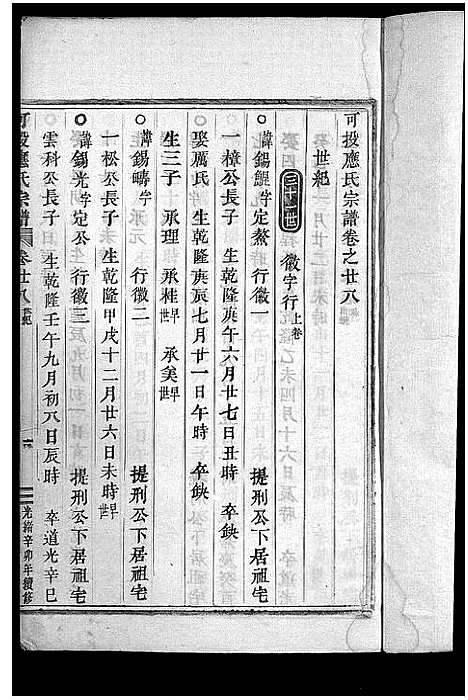 可投應氏宗譜卷之廿八
世紀
徽字行 上卷
諱錫鯤字定鰲 行徽一 提刑公下居祖宅
一樟公長子 生乾隆庚午六月廿七日丑時 卒缺
娶厲氏 生乾隆庚辰七月廿一日午時 卒缺
生三子 承理 承桂早世 承美早世
諱錫疇字 行徽二 提刑公下居祖宅
一松公長子 生乾隆甲戌十二月廿六日未時早世
諱錫光字定公 行徽三 提刑公下居祖宅
雲科公長子 生乾隆壬午九月初八日辰時 卒道光辛巳
可投應氏宗譜 卷廿八 世紀 光緒辛卯年續修